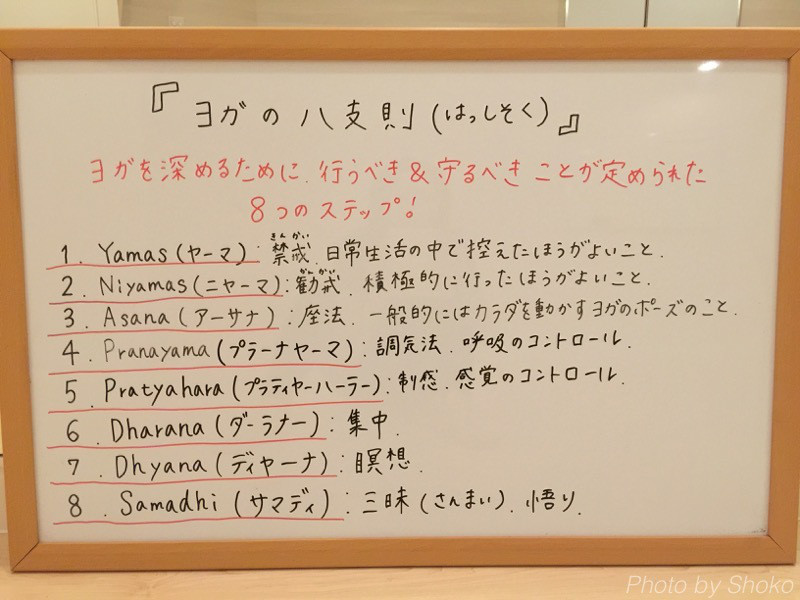 『ヨガの八支則(はっしそく)』
ヨガを深めるために、行うべき&守るべきことが定められた
8つのステップ!
1. Yamas(ヤーマ):禁戒、日常生活の中で控えたほうがよいこと。
きんかい
2. Niyamas(ニヤーマ):勧戒、積極的に行ったほうがよいこと。
かんかい
3. Asana(アーサナ):座法、一般的にはカラダを動かすヨガのポーズのこと。
4. Pranayama(プラーナヤーマ):調気法、呼吸のコントロール。
5. Pratyahara(プラティヤーハーラー):制感、感覚のコントロール。
6. Dharana(ダーラナー):集中。
7. Dhyana(ディヤーナ):瞑想。
8. Samadhi(サマディ):三昧(さんまい)、悟り。
Photo by Shoko